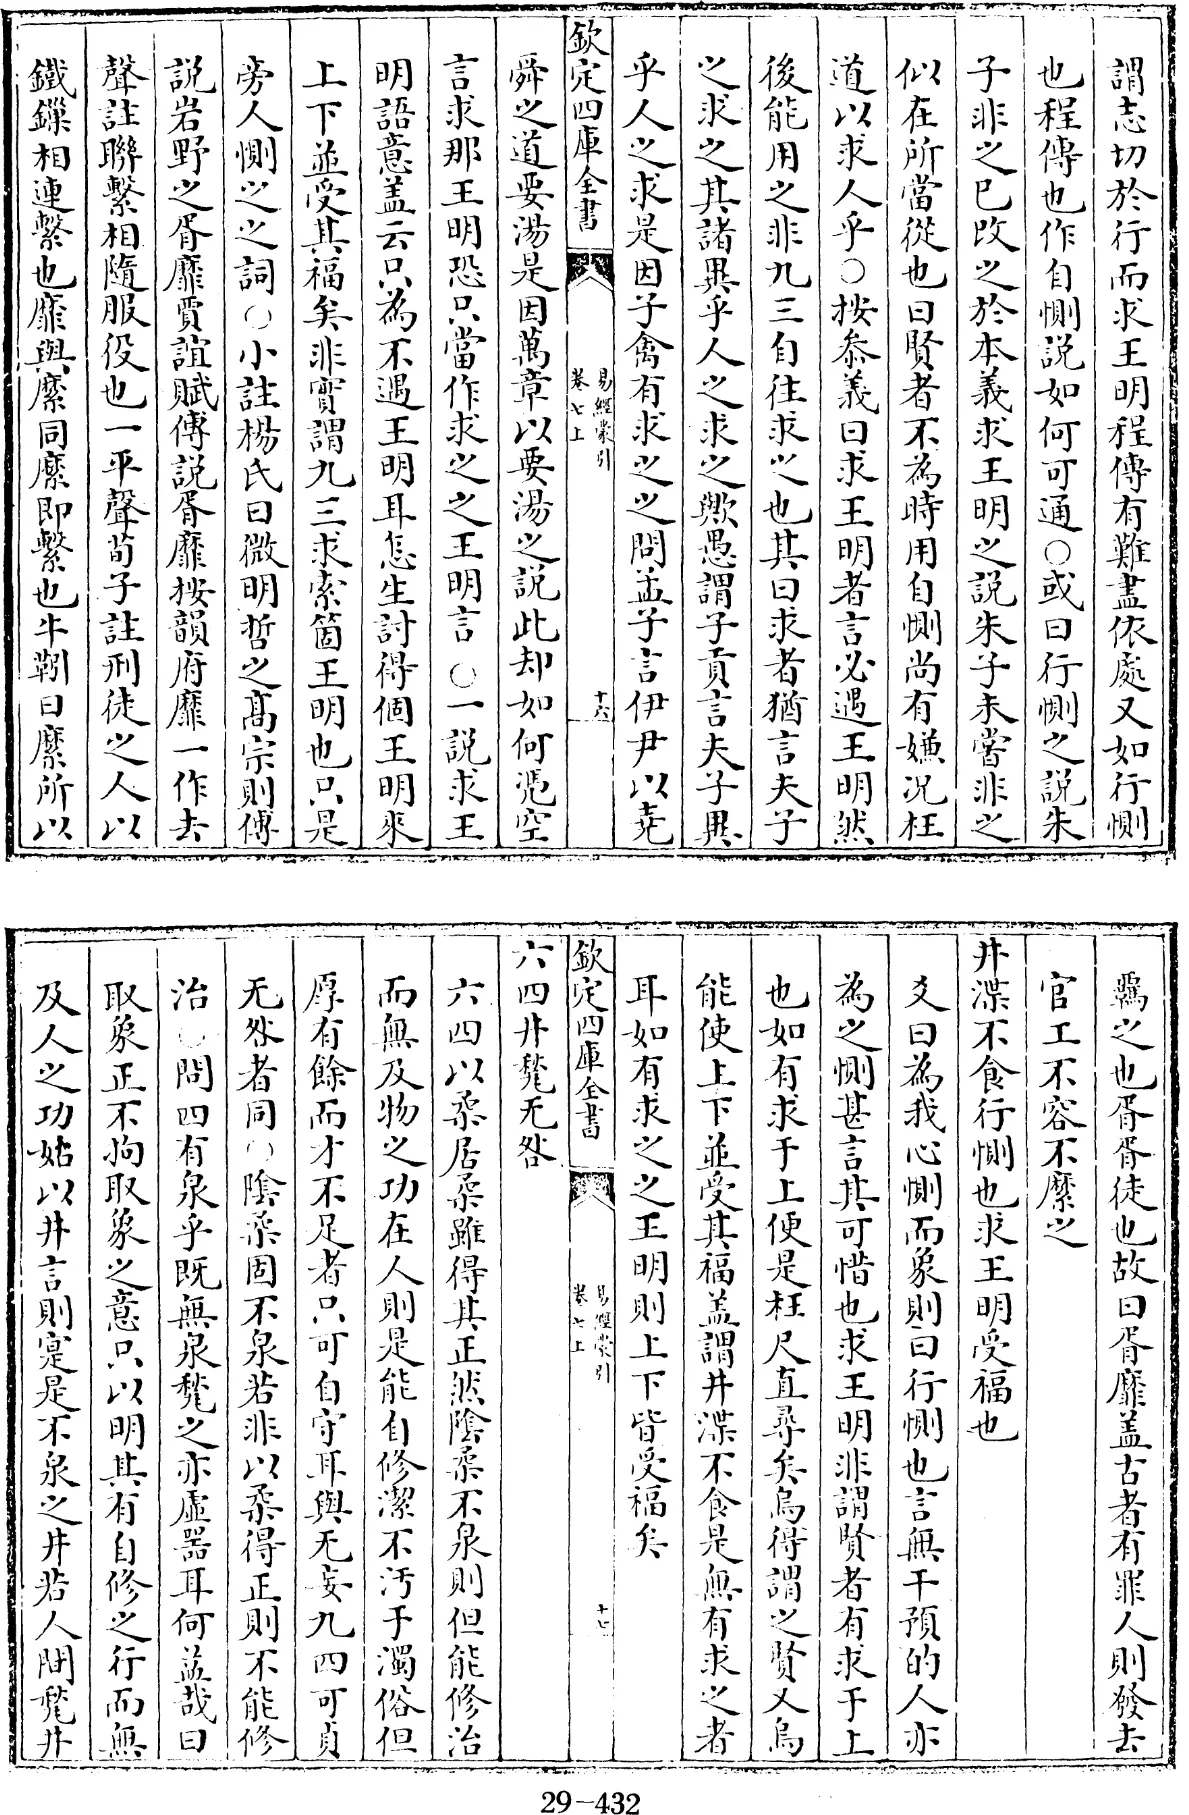 謂志切於行而求王明程傳有難盡依處又如行惻
也程傳也作自惻説如何可通○或曰行惻之説朱
子非之已改之於本義求王明之説朱子未嘗非之
似在所當從也曰賢者不為時用自惻尚有嫌况枉
道以求人乎○按叅義曰求王明者言必遇王明然
後能用之非九三自往求之也其曰求者猶言夫子
之求之其諸異乎人之求之歟愚謂子貢言夫子異
乎人之求是因子禽有求之之問孟子言伊尹以堯
欽定四庫全書
易經蒙引
卷七上
十六
舜之道要湯是因萬章以要湯之説此却如何憑空
言求那王明恐只當作求之之王明言○一説求王
明語意盖云只為不遇王明耳怎生討得個王明來
上下並受其福矣非實謂九三求索箇王明也只是
旁人惻之之詞○小註楊氏曰微明哲之髙宗則傅
説岩野之胥靡賈誼賦傅説胥靡按韻府靡一作去
聲註聯繫相隨服役也一平聲荀子註刑徒之人以
鐵鏁相連繫也靡與縻同縻即繫也牛靷曰縻所以
羈之也胥胥徒也故曰胥靡盖古者有罪人則發去
官工不容不縻之
井渫不食行惻也求王明受福也
爻曰為我心惻而象則曰行惻也言無干預的人亦
為之惻甚言其可惜也求王明非謂賢者有求于上
也如有求于上便是枉尺直尋矣烏得謂之賢又烏
能使上下並受其福盖謂井渫不食是無有求之者
耳如有求之之王明則上下皆受福矣
欽定四庫全書
易經蒙引
卷七上
十七
六四井甃无咎
六四以柔居柔雖得其正然陰柔不泉則但能修治
而無及物之功在人則是能自修潔不汚于濁俗但
厚有餘而才不足者只可自守耳與无妄九四可貞
无咎者同○陰柔固不泉若非以柔得正則不能修
治○問四有泉乎既無泉甃之亦虛器耳何益哉曰
取象正不拘取象之意只以明其有自修之行而無
及人之功姑以井言則寔是不泉之井若人間甃井
29-432